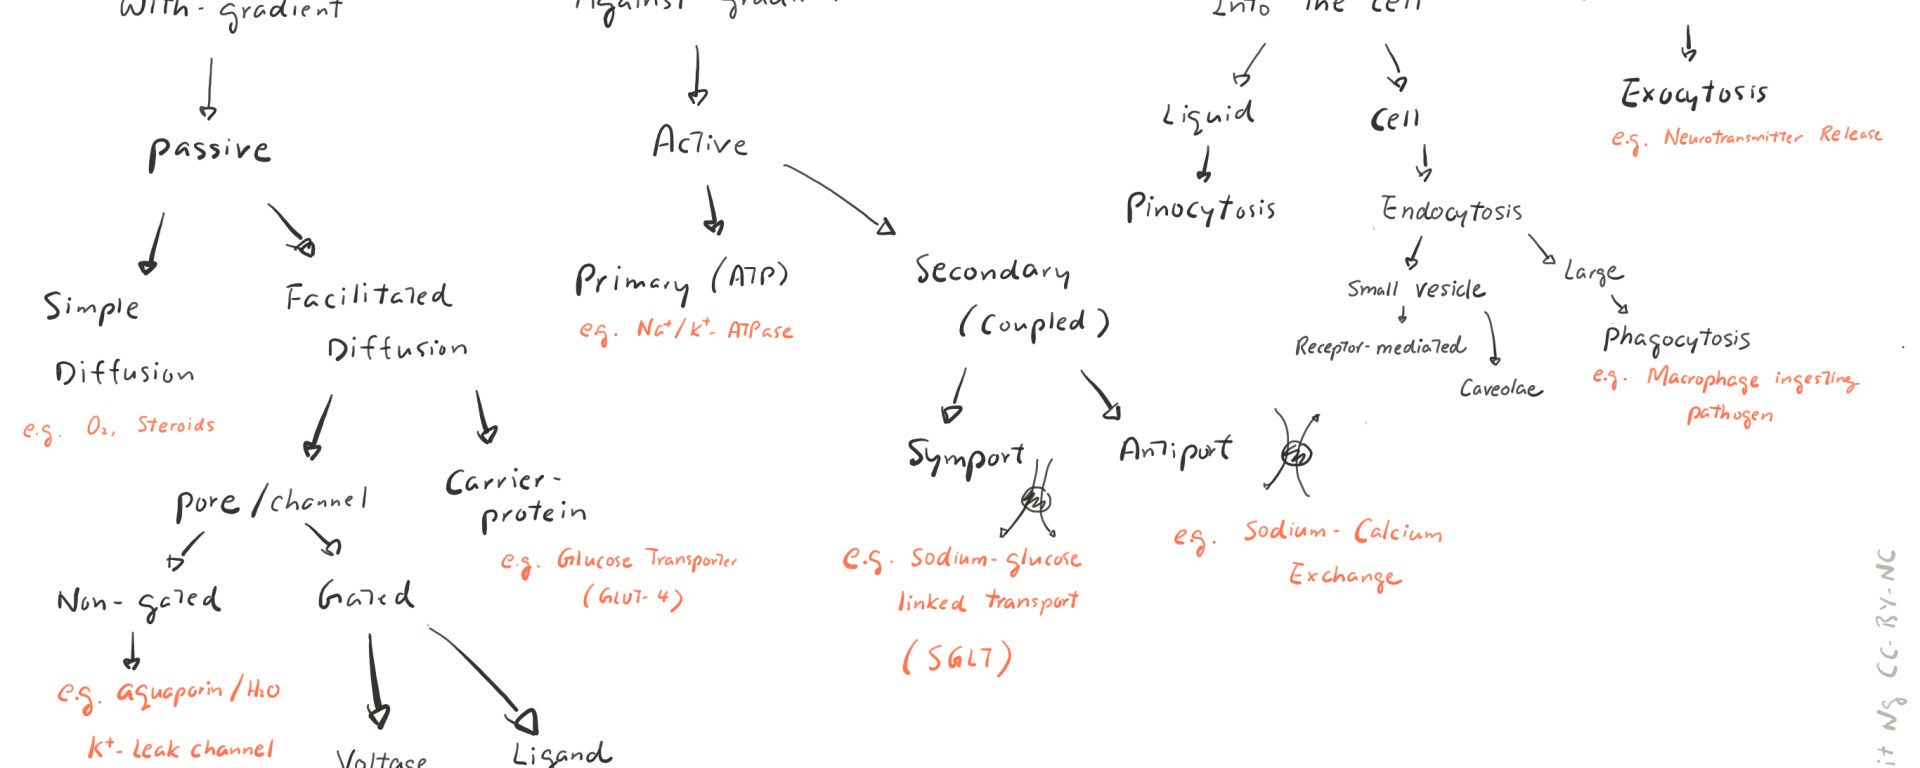 With-gradient
Against gradi
Into the cell
Passive
Simple
Diffusion
e.g. O₂, Steroids
Facilitated
Diffusion
Pore/channel
Non-gated
e.g. aquaporin/H₂O
K⁺-Leak channel
Gated
Voltage
Ligand
Carrier-
protein
e.g. Glucose Transporter
(GLUT-4)
Active
Primary (ATP)
e.g. Na⁺/K⁺-ATPase
Secondary
(Coupled)
Symport
e.g. Sodium-glucose
linked transport
(SGLT)
Antiport
e.g. Sodium-Calcium
Exchange
Liquid
Pinocytosis
Cell
Endocytosis
Small vesicle
Receptor-mediated
Caveolae
Large
Phagocytosis
e.g. Macrophage ingesting
pathogen
Exocytosis
e.g. Neurotransmitter Release
it Ng CC-BY-NC